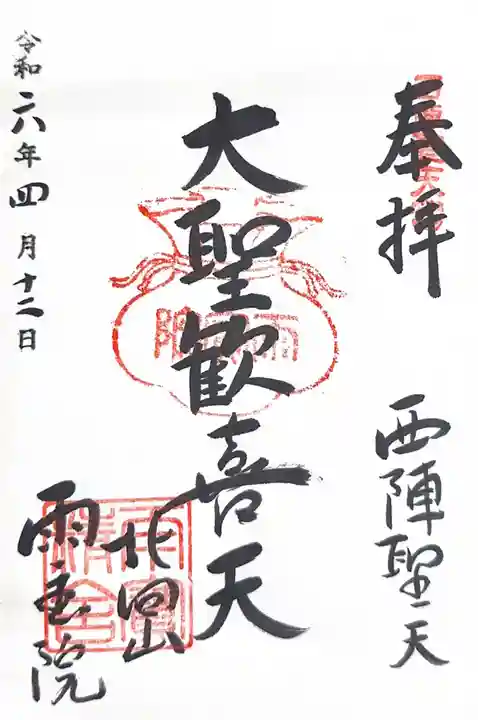 奉拝
西陣聖天
大聖歓喜天
北向山
雨宝院
令和六年四月十二日